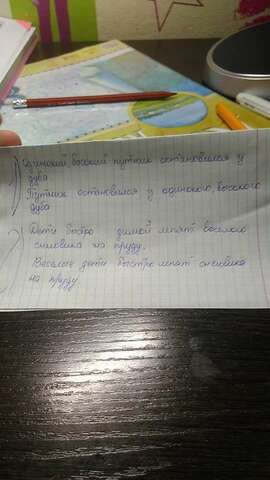 Одинокий высокий путник остановился у
дуба
Путник остановился у одинокого, высокого
дуба
Дети быстро зимой лепят веселого
снеговика на пруду.
Веселые дети быстро лепят снеговика
на пруду